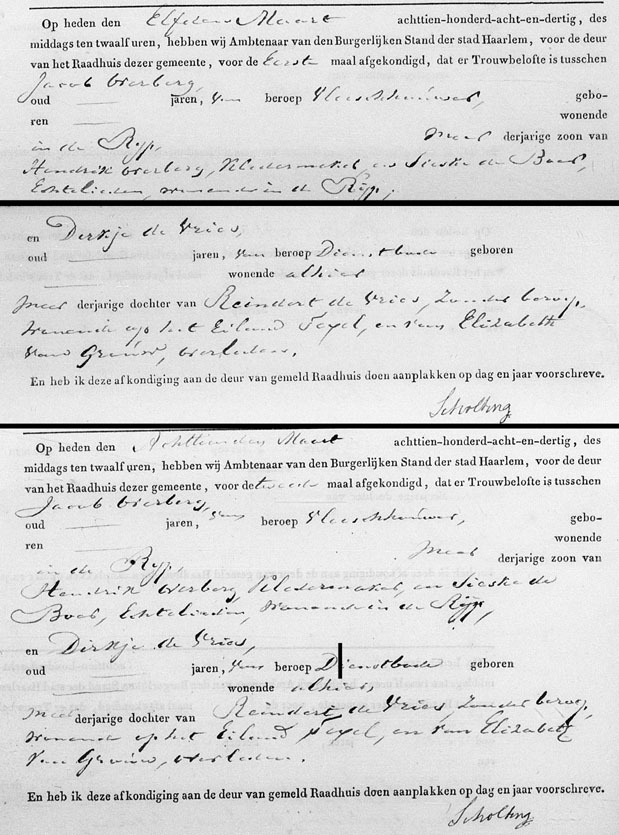 Op heden den Elfden Maart achttien-honderd-acht-en-dertig, des
middags ten twaalf uren, hebben wij Ambtenaar van den Burgerlijken Stand der stad Haarlem, voor de deur
van het Raadhuis dezer gemeente, voor de Eerste maal afgekondigd, dat er Trouwbelofte is tusschen
Jacob Overberg,
oud jaren, van beroep Vleeschhouwer, gebo-
ren wonende
in de Ryp, Meer derjarige zoon van
Hendrik Overberg, Kledermaker, en Sieske de Boer,
Echtelieden, wonende in de Ryp;
en Dirkje de Vries,
oud jaren, van beroep Dienstbode geboren
wonende alhier
Meer derjarige dochter van Reindert de Vries, Zonder beroep,
wonende op het Eiland Texel, en van Elizabeth
van Gruow, overleden.
En heb ik deze afkondiging aan de deur van gemeld Raadhuis doen aanplakken op dag en jaar voorschreve.
Scholting
Op heden den Achttienden Maart achttien-honderd-acht-en-dertig, des
middags ten twaalf uren, hebben wij Ambtenaar van den Burgerlijken Stand der stad Haarlem, voor de deur
van het Raadhuis dezer gemeente, voor de tweede maal afgekondigd, dat er Trouwbelofte is tusschen
Jacob Overberg,
oud jaren, van beroep Vleeschhouwer, gebo-
ren wonende
in de Ryp, Meer derjarige zoon van
Hendrik Overberg, Kledermaker, en Sieske de
Boer, Echtelieden, wonende in de Ryp,
en Dirkje de Vries,
oud jaren, van beroep Dienstbode geboren
wonende alhier,
Meer derjarige dochter van Reindert de Vries, Zonder beroep,
wonende op het Eiland Texel, en van Elizabeth
van Gruow, overleden.
En heb ik deze afkondiging aan de deur van gemeld Raadhuis doen aanplakken op dag en jaar voorschreve.
Scholting